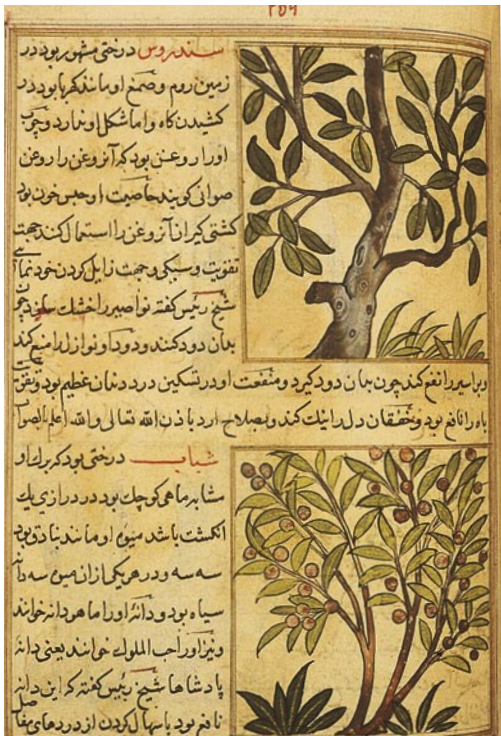 ۲۵۹
سندروس درختی مشهور بود در
زمین روم و صمغ او مانند کهربا بود در
کشیدن کاه و اما شکل او ندارد و چوب
او را روغن بود که آنرا روغن
صوانی کویند خاصیت او حبس خون بود
کشتی کیران آنروغن را استعمال کنند جهت
تقویت و سبکی و جهت زایل کردن خود
شیخ رئیس کفته نواصیر را خشک سازد چون
بدان دود کنند و دود او نوازل را منع کند
و براسیر را نفع کند چون بدان دود کیرد و منفعت او در تسکین درد دندان عظیم بود و
باه را نافع بود و خفقان دل را نیک کند و بصلاح ارد باذن الله تعالی و الله اعلم بالصواب
شباب درختی بود که برک او
مشابه ماهی کوچک بود در درازی یک
انکشت باشد میوه او مانند بنادق بود
سه سه و در هر یکی از ان میوه سه دانه
سیاه بود و دانهٔ او را ماهودانه خوانند
و نیز او را حب الملوک خوانند یعنی دانهٔ
پادشاها شیخ رئیس کفته که این دانه
نافع بود باسهال کردن از دردهای مفاصل